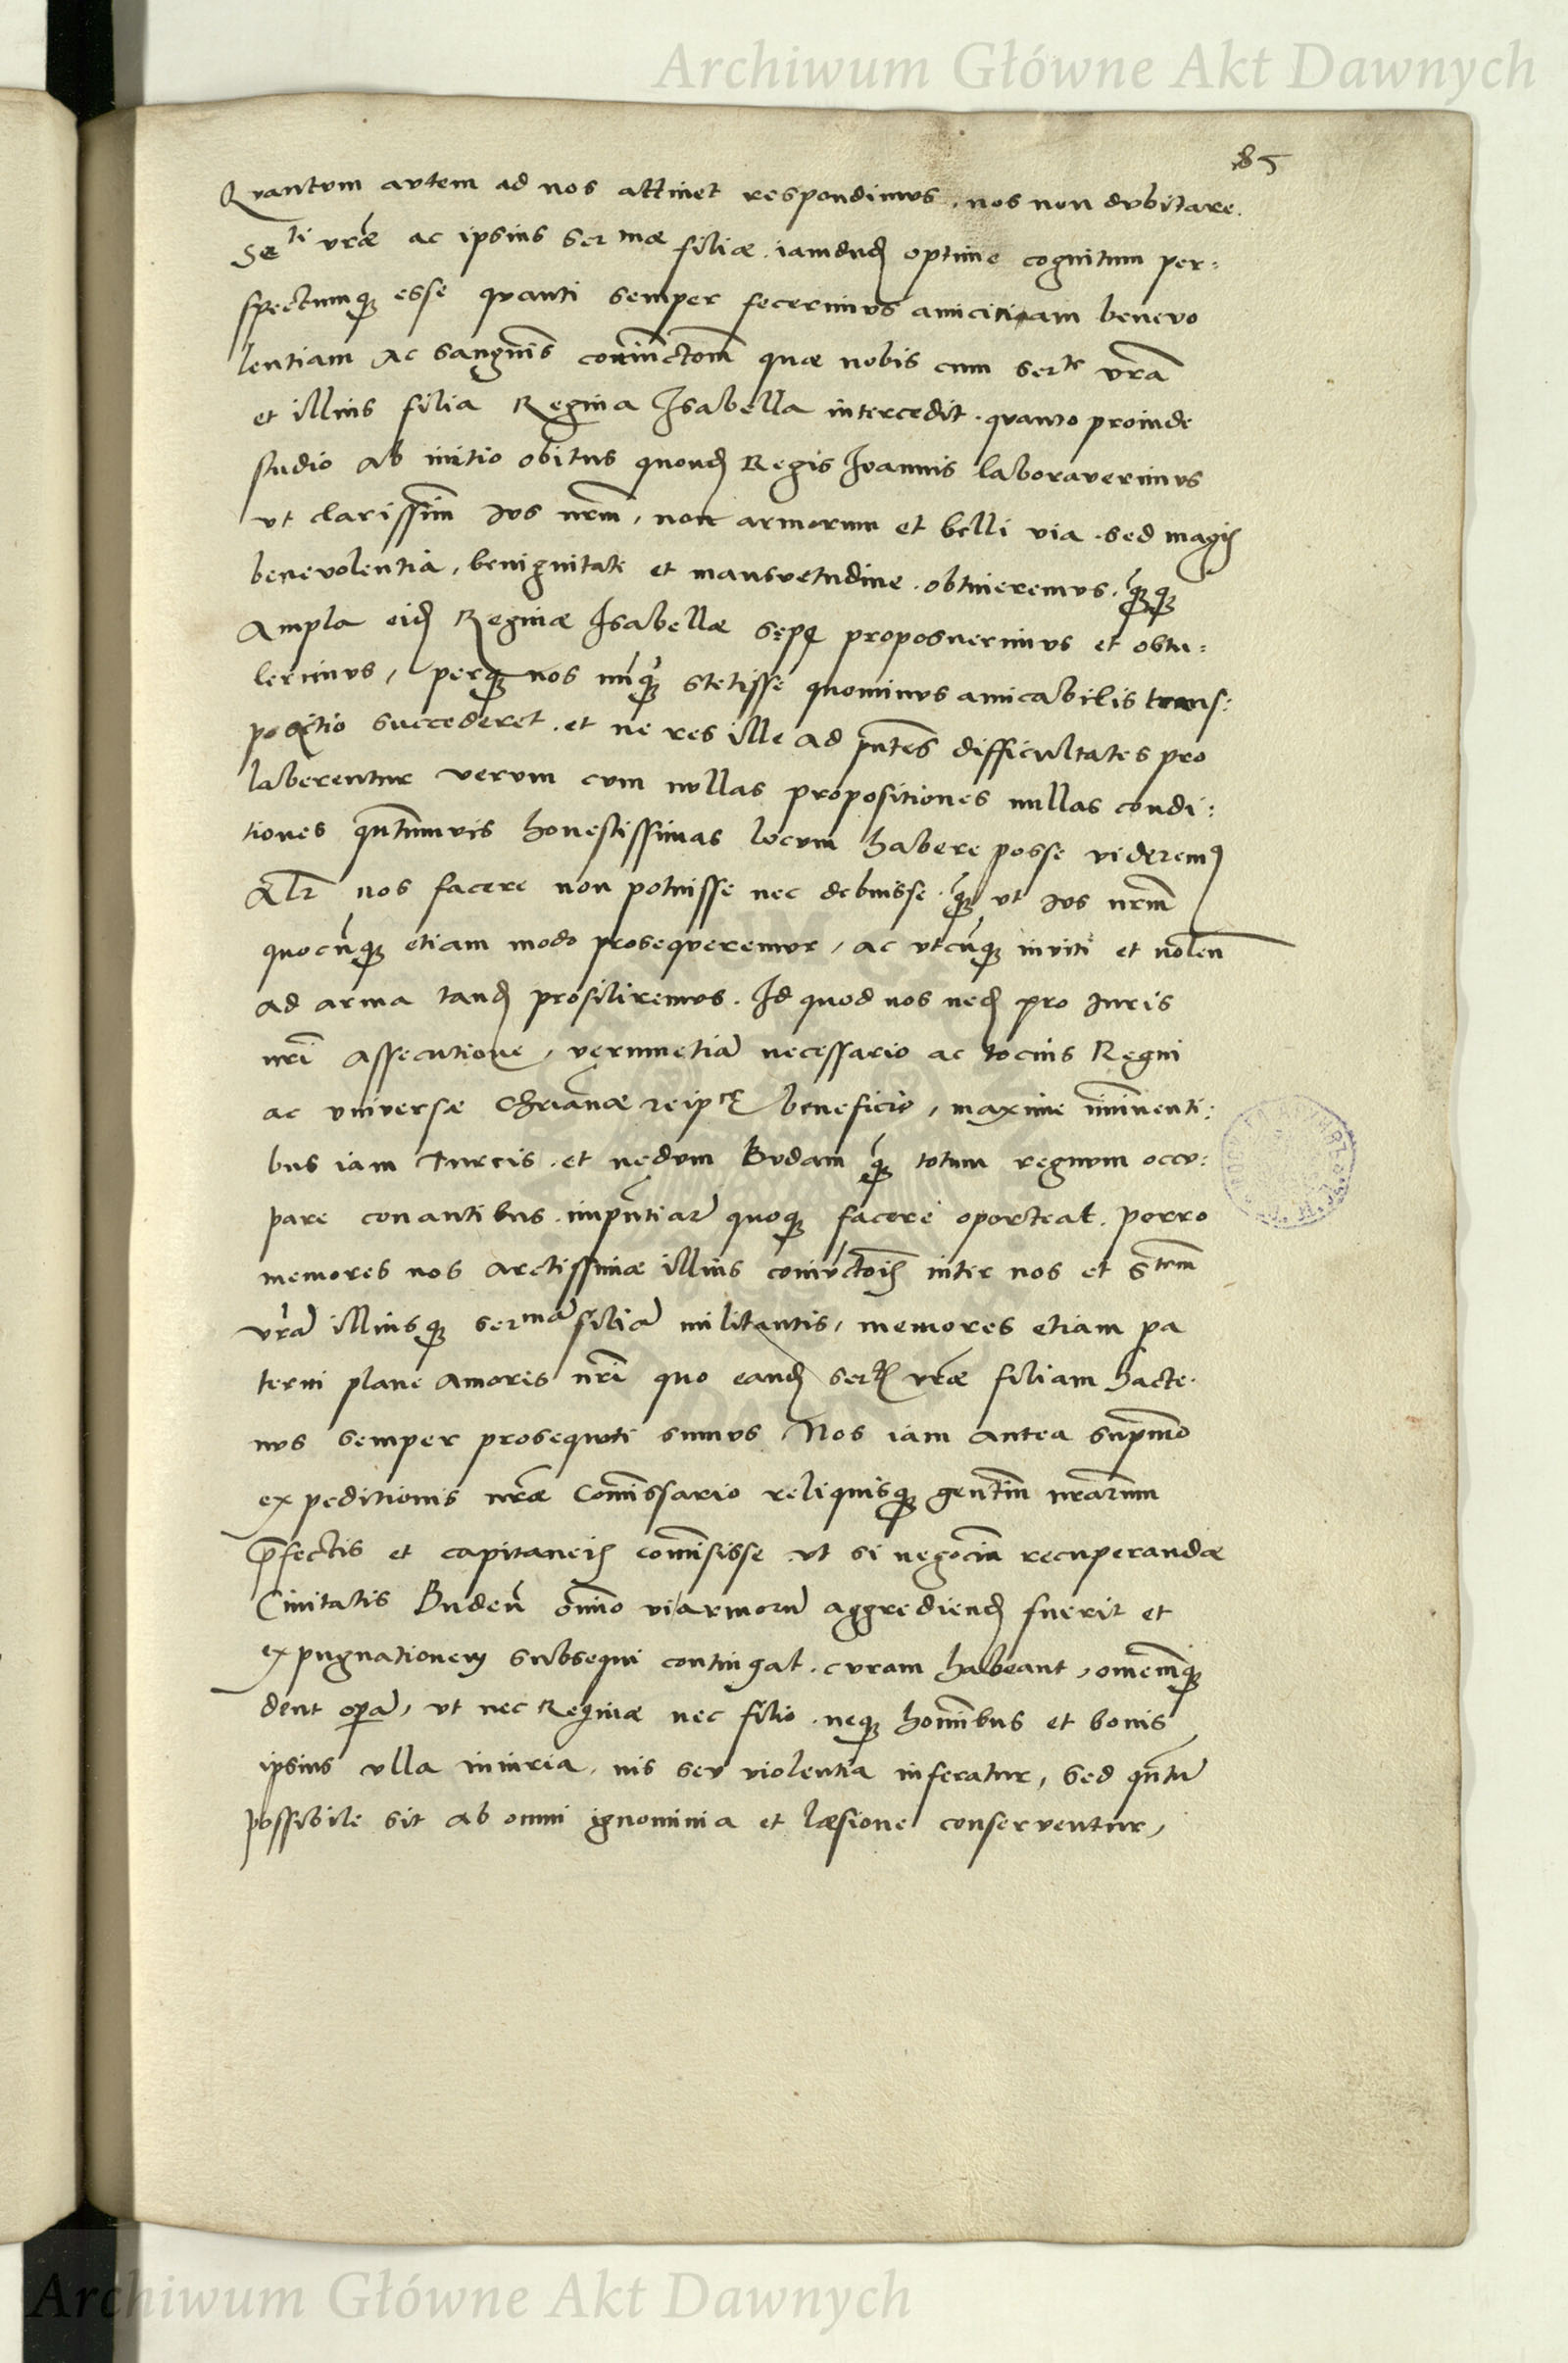 Archiwum Główne Akt Dawnych
85
Qvantvm avtem ad nos attinet respondimvs, nos non dvbitare.
Seti vrãe ac ipsius sermae filiæ iamdud optime cognitum per:
spectumq esse qvanti semper fecerimvs amicitiam benevo
lentiam ac sanguis coniunctõm quæ nobis cum serte vrã
et illius filia Regina Isabella intercedit. qvanto proinde
studio ab initio obitus quond Regis Ioannis laboraverimvs
vt clarissim ivs nrm, non armorum et belli via sed magis
benevolentia, benignitate et mansvetudine obtineremvs.
Ampla eid Reginæ Isabellæ sępe proposuerimvs et obtu:
lerimvs, perq nos nunq stetisse quominvs amicabilis trans:
positio succederet. et ne res ille ad pntes difficultates pro
laberentur vervm cvm nvllas propositiones nullas condi:
tiones qntumvis honestissimas locvm habere posse viderem9
Alr nos facere non potuisse nec debuisse q vt ivs nrm
quocunq etiam modo proseqveremvr, ac vtcunq inviti et nolen
ad arma tand prosiliremvs. Id quod nos ned pro Iuris
nri assecutione, verumetiã necessario ac tocius Regni
ac vniversæ Chrianæ reipce beneficio, maxime iminenti:
bus iam Turcis et nedvm Bvdam q totum regnvm occv:
pare conantibus quoq facere oporteat. Porro
memores nos arctissimæ illius coniunctois inter nos et Stem
vrã illiusq sermã filiã militantis, memores etiam pa
terni plane amoris nri quo eand sertis vræ filiam hacte
nvs semper prosequuti sumvs Nos iam antea supremo
expeditionis nræ Comissario reliquisq gentium nrarum
pfectis et capitaneis comisisse vt si negocium recuperandæ
Civitatis Buden omino vi armorũ aggrediend fuerit et
expugnationem subsequi contingat. cvram habeant, omemq
dent operã, vt nec Reginæ nec filio neq hominibus et bonis
ipsius vlla iniuria, vis sev violentia inferatur, sed qntũ
possibile sit ab omni ignominia et læsione conserventur,
Archiwum Główne Akt Dawnych